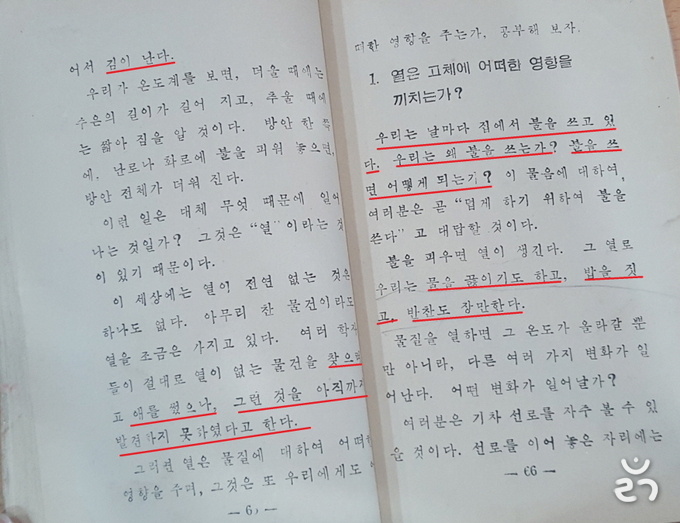 어서 김이 난다.
우리가 온도계를 보면, 더울 때에는
수은의 길이가 길어 지고, 추울 때에
는 짧아 짐을 압 것이다. 방안 한
에, 난로나 화로에 불을 피워 놓으면,
방안 전체가 더워 진다.
이런 일은 대체 무엇 때문에 일어
나는 것일가? 그것은 “열”이라는 것
이 있기 때문이다.
이 세상에는 열이 전연 없는 것은
하나도 없다. 아무리 찬 물건이라도
열을 조금은 가지고 있다. 여러 학자
들이 절대로 열이 없는 물건을 찾으려
고 애를 썼으나, 그런 것을 아직까지
발견하지 못하였다고 한다.
그러면 열은 물질에 대하여 어떠한
영향을 주며, 그것은 또 우리에게도
떠한 영향을 주는가, 공부해 보자.
1. 열은 고체에 어떠한 영향을
끼치는가?
우리는 날마다 집에서 불을 쓰고 있
다. 우리는 왜 불을 쓰는가? 불을 쓰
면 어떻게 되는가? 이 물음에 대하여,
여러분은 곧 “덥게 하기 위하여 불을
쓴다”고 대답할 것이다.
불을 피우면 열이 생긴다. 그 열로
우리는 물을 끓이기도 하고, 밥을 짓
고, 반찬도 장만한다.
물질을 열하면 그 온도가 올라갈 뿐
만 아니라, 다른 여러 가지 변화가 일
어난다. 어떤 변화가 일어날가?
여러분은 기차 선로를 자주 볼 수 있
을 것이다. 선로를 이어 놓은 자리에는
— 66 —